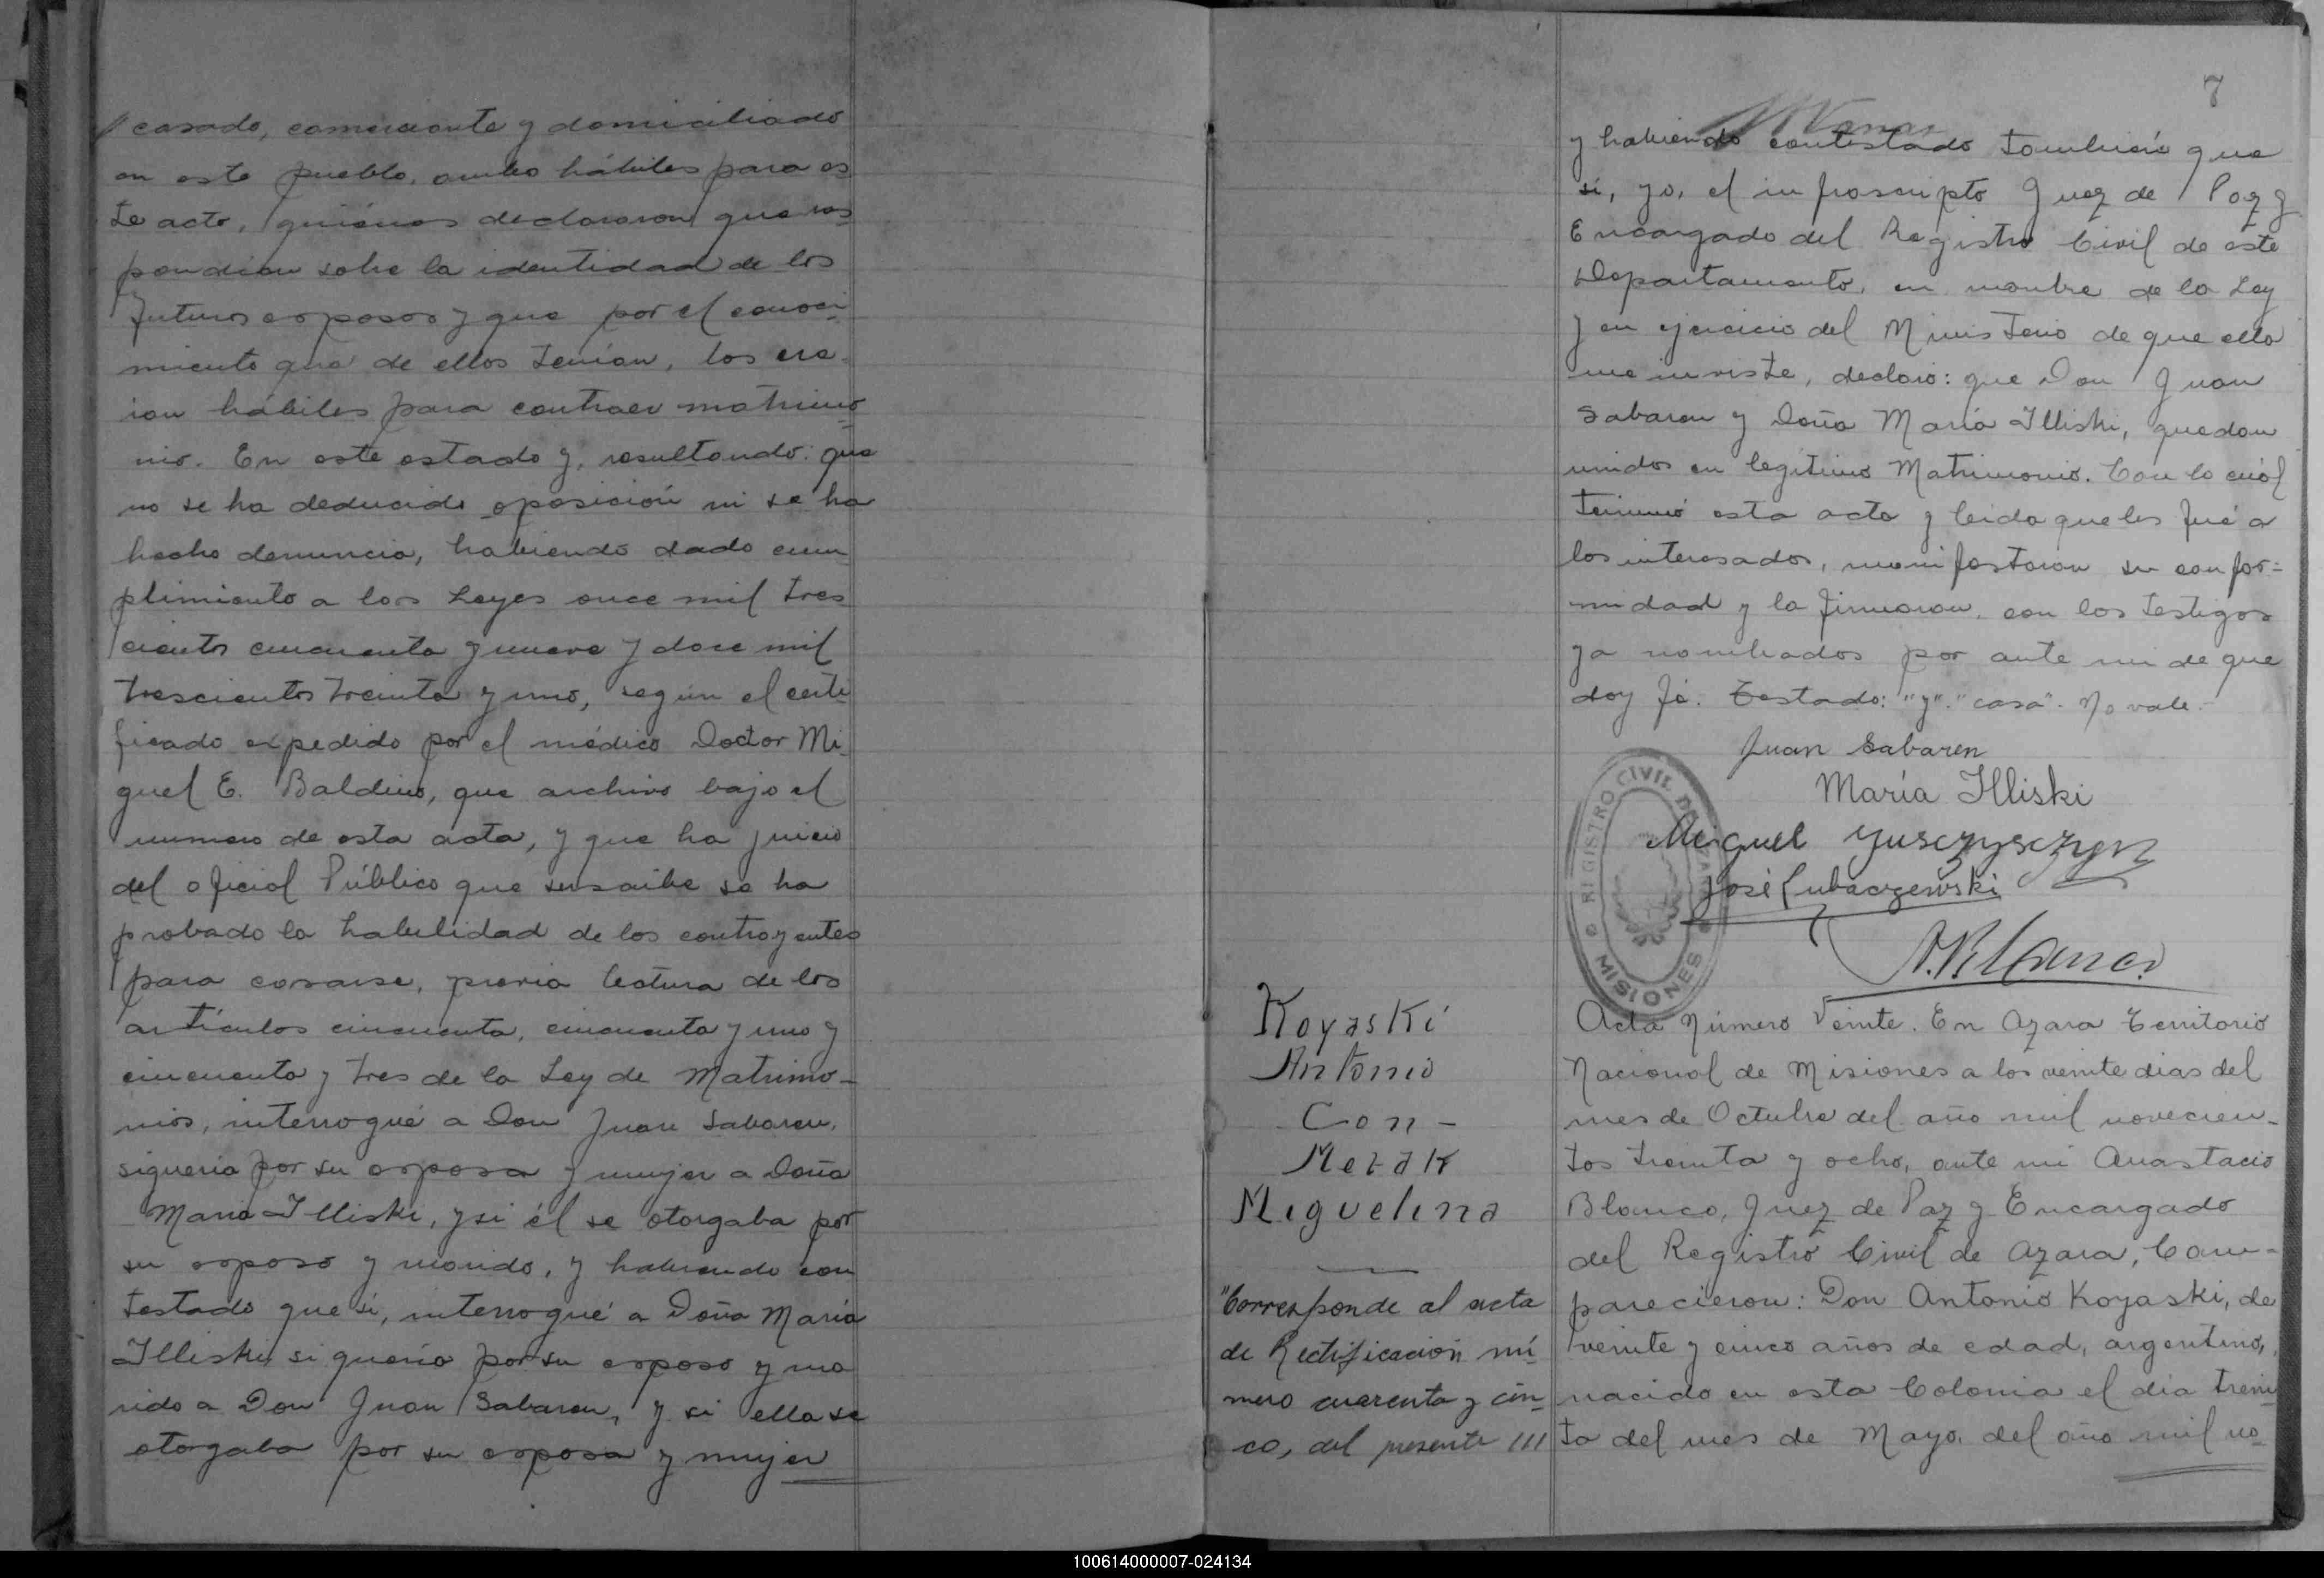 casado, comerciante y domiciliado
en este pueblo, ambo hábiles para es-
te acto, quiénes declararon que res-
pondian sobre la identidad de los
futuros esposos y que por el conoci-
miento que de ellos tenían, los cre-
ian hábiles para contraer matrimo-
nio. En este estado y, resultando: que
no se ha deducido oposición ni se ha
hecho denuncia, habiendo dado cum-
plimiento a las Leyes once mil tres
cientos cincuenta y nueve y doce mil
trescientos treinta y uno, según el certi-
ficado expedido por el médico Doctor Mi-
guel E. Baldino, que archivo bajo el
numero de esta acta, y que ha juicio
del oficial Público que suscribe se ha
probado la habilidad de los contrayentes
para casarse, previa lectura de los
artículos cincuenta, cincuenta y uno y
cincuenta y tres de la Ley de Matrimo-
nios, interrogué a Don Juan Sabaren,
siqueria por su esposa y mujer a Doña
Maria Illiski, y si él se otorgaba por
su esposo y marido, y habiendo con
testado que sí, interrogué a Doña María
Illiski si quería por su esposo y ma
rido a Don Juan Sabaren, y si ella se
otorgaba por su esposa y mujer
7
y habiendo contestado también que
sí, yo, el infrascripto Juez de Paz y
Encargado del Registro Civil de este
Departamento, en nombre de la Ley
y en ejercicio del Ministerio de que ella
me inviste, declaro: que Don Juan
Sabaren y Doña María Illiski, quedan
unidos en legítimo Matrimonio. Con lo cuál
terminó esta acta y leida que les fué a
los interesados, manifestaron su confor=
midad y la firmaron, con los testigos
ya nombrados por ante mi de que
doy fé. Testado: "y". "casa". No vale.-
Juan Sabaren
María Illiski
Miguel Yusczysczyn
José Lubaczewski
A. Blanco
REGISTRO CIVIL DE AZARA
MISIONES
Koyaski
Antonio
Con -
Metak
Miguelina
"Corresponde al acta
de Rectificacion nú-
mero cuarenta y cin-
co, del presente ///
Acta Número Veinte. En Azara Territorio
Nacional de Misiones a los veinte dias del
mes de Octubre del año mil novecien-
tos treinta y ocho, ante mi Anastacio
Blanco, Juez de Paz y Encargado
del Registro Civil de Azara, Com-
parecieron: Don Antonio Koyaski, de
veinte y cinco años de edad, argentino,
nacido en esta Colonia el día trein-
ta del mes de Mayo del año mil no-
100614000007-024134